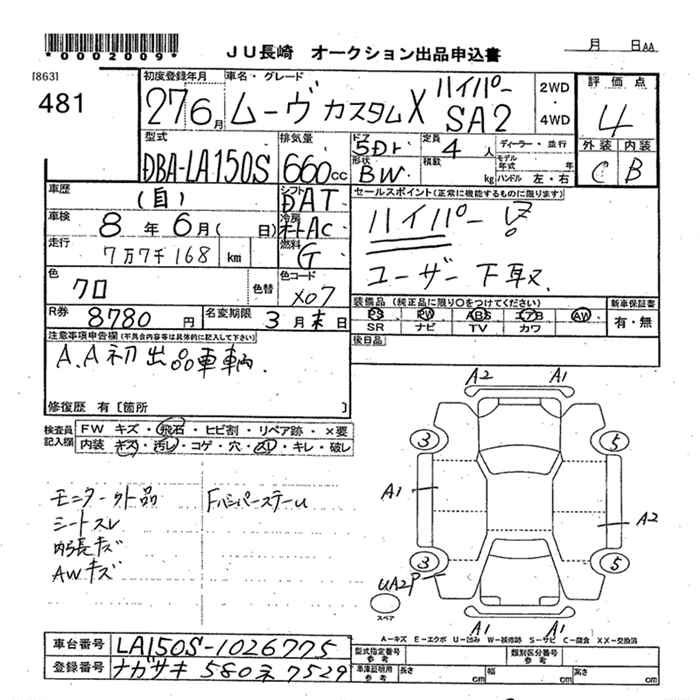 *0002009*
JU長崎 オークション出品申込書
月 日AA
[863]
481
初度登録年月 車名・グレード
27 6月 ムーヴ カスタムX ハイパー SA2
2WD・4WD
評価点
4
外装 内装
C B
型式 排気量 ドア 定員 ディーラー・並行
DBA-LA150S 660cc 5Dr 4人
形状 積載 モデル年式 年
BW kg ハンドル 左・右
車歴 シフト セールスポイント(正常に機能するものに限ります)
(自) DAT
車検 冷房
8年 6月( 日) オートAC
ハイパー
走行 燃料
7万7千168 km G
ユーザー下取.
色 色替 色コード
クロ X07
装備品(純正品に限り○をつけてください) 新車保証書
PS PW ABS エアB AW 有・無
SR ナビ TV カワ
R券 8780円 名変期限 3月末日
後日品
注意事項申告欄(不具合内容等は具体的に記入して下さい)
A.A初出品車輌.
修復歴 有[箇所 ]
検査員記入欄
FW キズ・飛石・ヒビ割・リペア跡・×要
内装 キズ・汚レ・コゲ・穴・スレ・キレ・破レ
モニター外品 Fバンパーステーム
シートスレ
内張キズ
AWキズ
A2 A1
3 5
A1 A2
3 5
UA2P
スペア
A1 A1
A-キズ E-エクボ U-凹み W-補修跡 S-サビ C-腐食 XX-交換済
車台番号 LA150S-1026775
型式指定番号 参考 類別区分番号 参考
登録番号 ナガサキ 580 ネ 7529
車庫証明用 参考 長さ cm 幅 cm 高さ cm